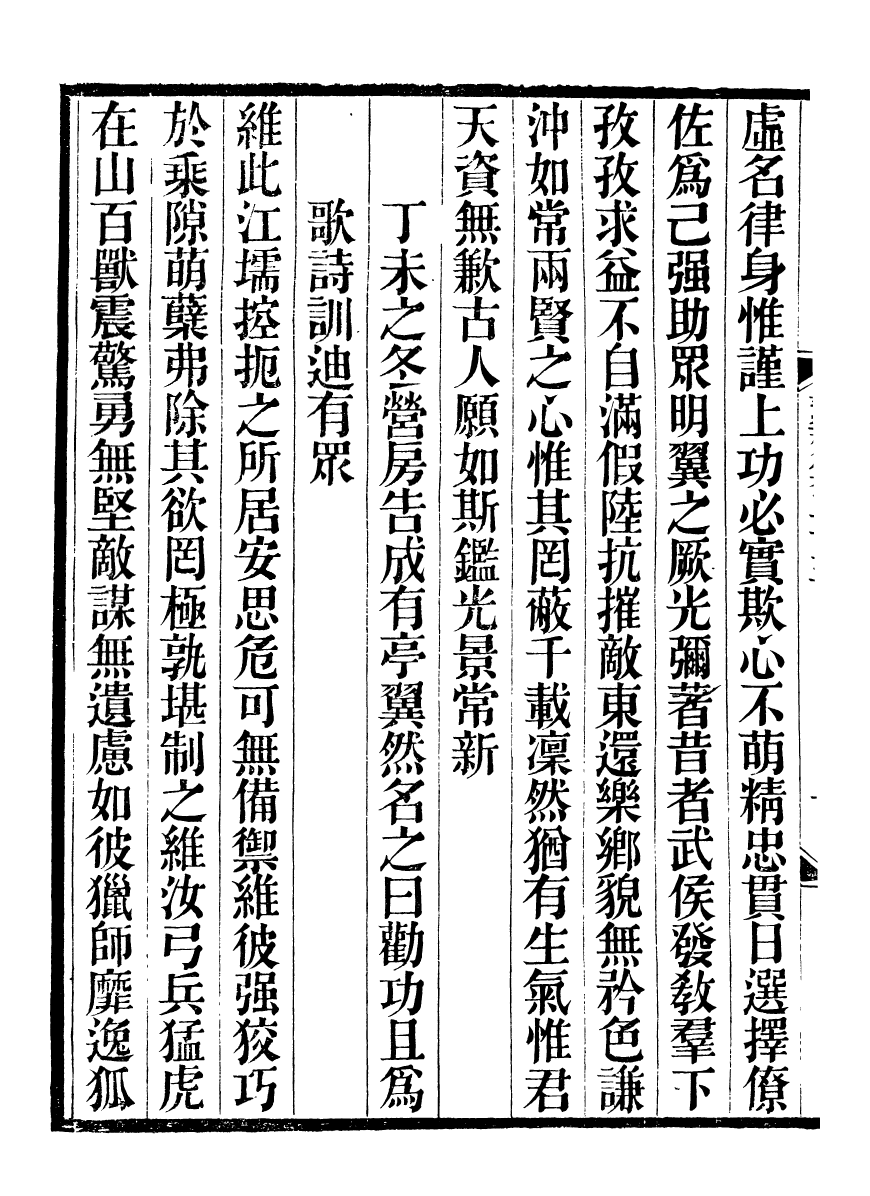 虛名律身惟謹上功必實欺心不萌精忠貫日選擇僚
佐爲己强助眾明翼之厥光彌著昔者武侯發敎羣下
孜孜求益不自滿假陸抗摧敵東還樂鄉貌無矜色謙
沖如常兩賢之心惟其罔蔽千載凜然猶有生氣惟君
天資無歉古人願如斯鑑光景常新
丁未之冬營房告成有亭翼然名之曰勸功且爲
歌詩訓迪有眾
維此江壖控扼之所居安思危可無備禦維彼强狡巧
於乘隙萌蘖弗除其欲罔極孰堪制之維汝弓兵猛虎
在山百獸震驚勇無堅敵謀無遺慮如彼獵師靡逸狐